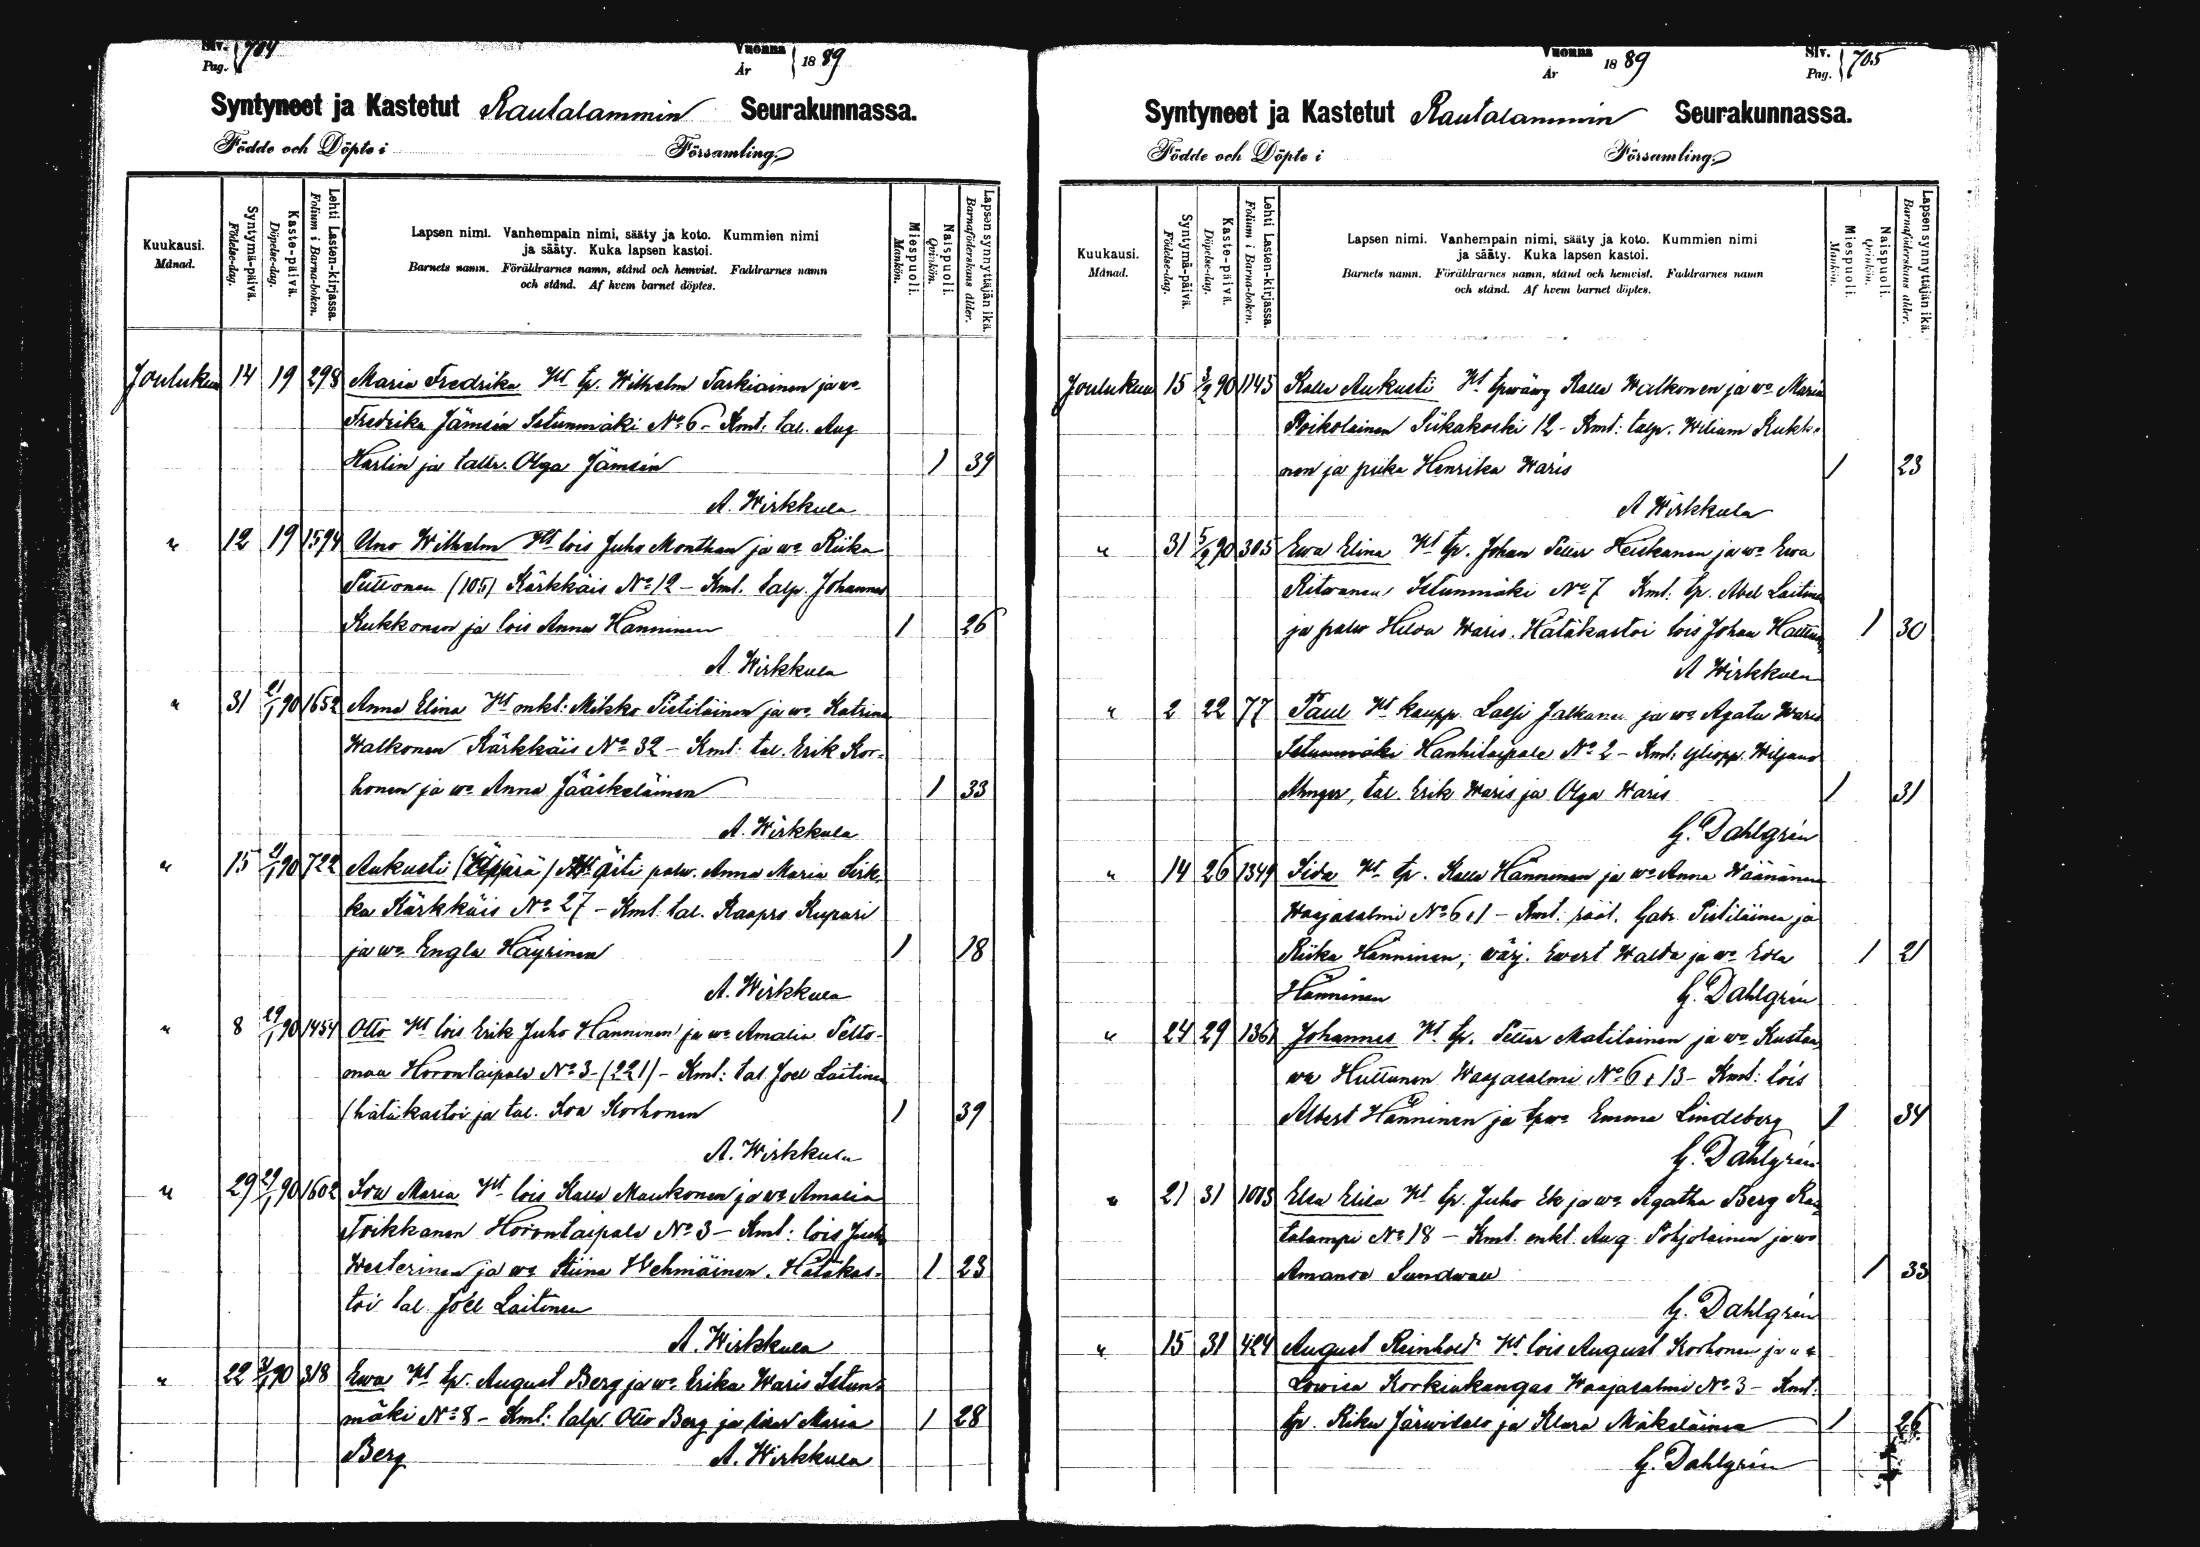 Siv. Pag. 704 Vuonna År 1889
Syntyneet ja Kastetut Rautalammin Seurakunnassa.
Födde och Döpte i Församling.
Kuukausi. Månad.
Syntymä-päivä. Födelse-dag.
Kaste-päivä. Döpelse-dag.
Lehti Lasten-kirjassa. Folium i Barna-boken.
Lapsen nimi. Vanhempain nimi, sääty ja koto. Kummien nimi
ja sääty. Kuka lapsen kastoi.
Barnets namn. Föräldrarnes namn, stånd och hemvist. Faddrarnes namn
och stånd. Af hvem barnet döptes.
Miespuoli. Mankön.
Naispuoli. Qvinkön.
Lapsen synnyttäjän ikä. Barnaföderskans ålder.
Joulukuu 14 19 298 Maria Fredrika Vt tp. Wilhelm Tarkiainen ja wo
Fredrika Jämsén Istunmäki No 6 – Kmt. tal. Aug
Harlin ja taltr. Olga Jämsén 1 39
A. Wirkkula
" 12 19 1594 Uno Wilhelm Vt lois Juho Monthan ja wo Riika
Puttonen (105) Kärkkäis No 12 – Kmt. talp. Johannes
Kukkonen ja lois Anna Hänninen 1 26
A. Wirkkula
" 31 21/1 90 1652 Anna Elina Vt mkt: Mikko Pistiläinen ja wo Katrina
Walkonen Kärkkäis No 32 – Kmt: tal. Erik Kor-
honen ja wo Anna Jääskeläinen 1 33
A. Wirkkula
" 15 21/1 90 722 Aukusti (Äppärä) Vt äiti palv. Anna Maria Sirk-
ka Kärkkäis No 27 – Kmt. tal. Kaapro Kupari
ja wo Engla Häyrinen 1 18
A. Wirkkula
" 8 29/1 90 1454 Otto Vt lois Erik Juho Hänninen ja wo Amalia Pelto-
maa Horontaipale No 3 – (221) – Kmt: tal Joel Laitinen
(hätäkastoi ja tal. Ida Korhonen 1 39
A. Wirkkula
" 29 29/1 90 1602 Ida Maria Vt lois Kalle Maukonen ja wo Amalia
Toikkanen Horontaipale No 3 – Kmt: lois Juho
Westerinen ja wo Stiina Wehmäinen. Hätäkas-
toi tal. Joel Laitinen 1 23
A. Wirkkula
" 22 31/1 90 318 Ewa Vt tp. August Berg ja wo Erika Waris Istun-
mäki No 8 – Kmt: talp. Otto Berg ja Maria 1 28
Berg A. Wirkkula
Vuonna År 1889 Siv. Pag. 705
Syntyneet ja Kastetut Rautalammin Seurakunnassa.
Födde och Döpte i Församling.
Kuukausi. Månad.
Syntymä-päivä. Födelse-dag.
Kaste-päivä. Döpelse-dag.
Lehti Lasten-kirjassa. Folium i Barna-boken.
Lapsen nimi. Vanhempain nimi, sääty ja koto. Kummien nimi
ja sääty. Kuka lapsen kastoi.
Barnets namn. Föräldrarnes namn, stånd och hemvist. Faddrarnes namn
och stånd. Af hvem barnet döptes.
Miespuoli. Mankön.
Naispuoli. Qvinkön.
Lapsen synnyttäjän ikä. Barnaföderskans ålder.
Joulukuu 15 3/2 90 1145 Kalle Aukusti Vt tpwäwy Kalle Walkonen ja wo Maria
Roikolainen Siikakoski 12 – Kmt: talp. Wiliam Kukko-
nen ja piika Henrika Waris 1 23
A Wirkkula
" 31 5/2 90 305 Ewa Elina Vt tp. Johan Petter Heiskanen ja wo Ewa
Ritwanen Istunmäki No 7 Kmt: tp. Abel Laitinen
ja palw Hilda Waris. Hätäkastoi lois Johan Hattunen 1 30
A Wirkkula
" 2 22 77 Paul Vt kaupp. Lassi Jalkanen ja wo Agata Waris
Istunmäki Hanhitaipale No 2 – Kmt: yliopp. Wiljand
Ahnger, tal. Erik Waris ja Olga Waris 1 31
G. Dahlgrén
" 14 26 1349 Iida Vt tp. Kalle Hänninen ja wo Anna Wäänänen
Waajasalmi No 6+1 – Kmt: räät. Gabr. Pistiläinen ja
Riika Hänninen, wärj. Ewert Walda ja wo Edla 1 21
Hänninen G. Dahlgrén
" 24 29 1361 Johannes Vt tp. Petter Matilainen ja wo Kustaa
wa Huttunen Waajasalmi No 6+13 – Kmt: lois
Albert Hänninen ja tpwo Emma Lindeberg 1 34
G. Dahlgrén
" 21 31 1013 Elsa Elida Vt tp. Juho Ek ja wo Agatha Berg Rau
talampi No 18 – Kmt. mkt. Aug. Pohjolainen ja wo
Amanda Sundwall 1 33
G. Dahlgrén
" 15 31 424 August Reinhold Vt lois August Korhonen ja wo
Lowisa Korkiakangas Waajasalmi No 3 – Kmt.
tp. Riku Järwisalo ja Klara Mäkeläinen 1 26
G. Dahlgrén